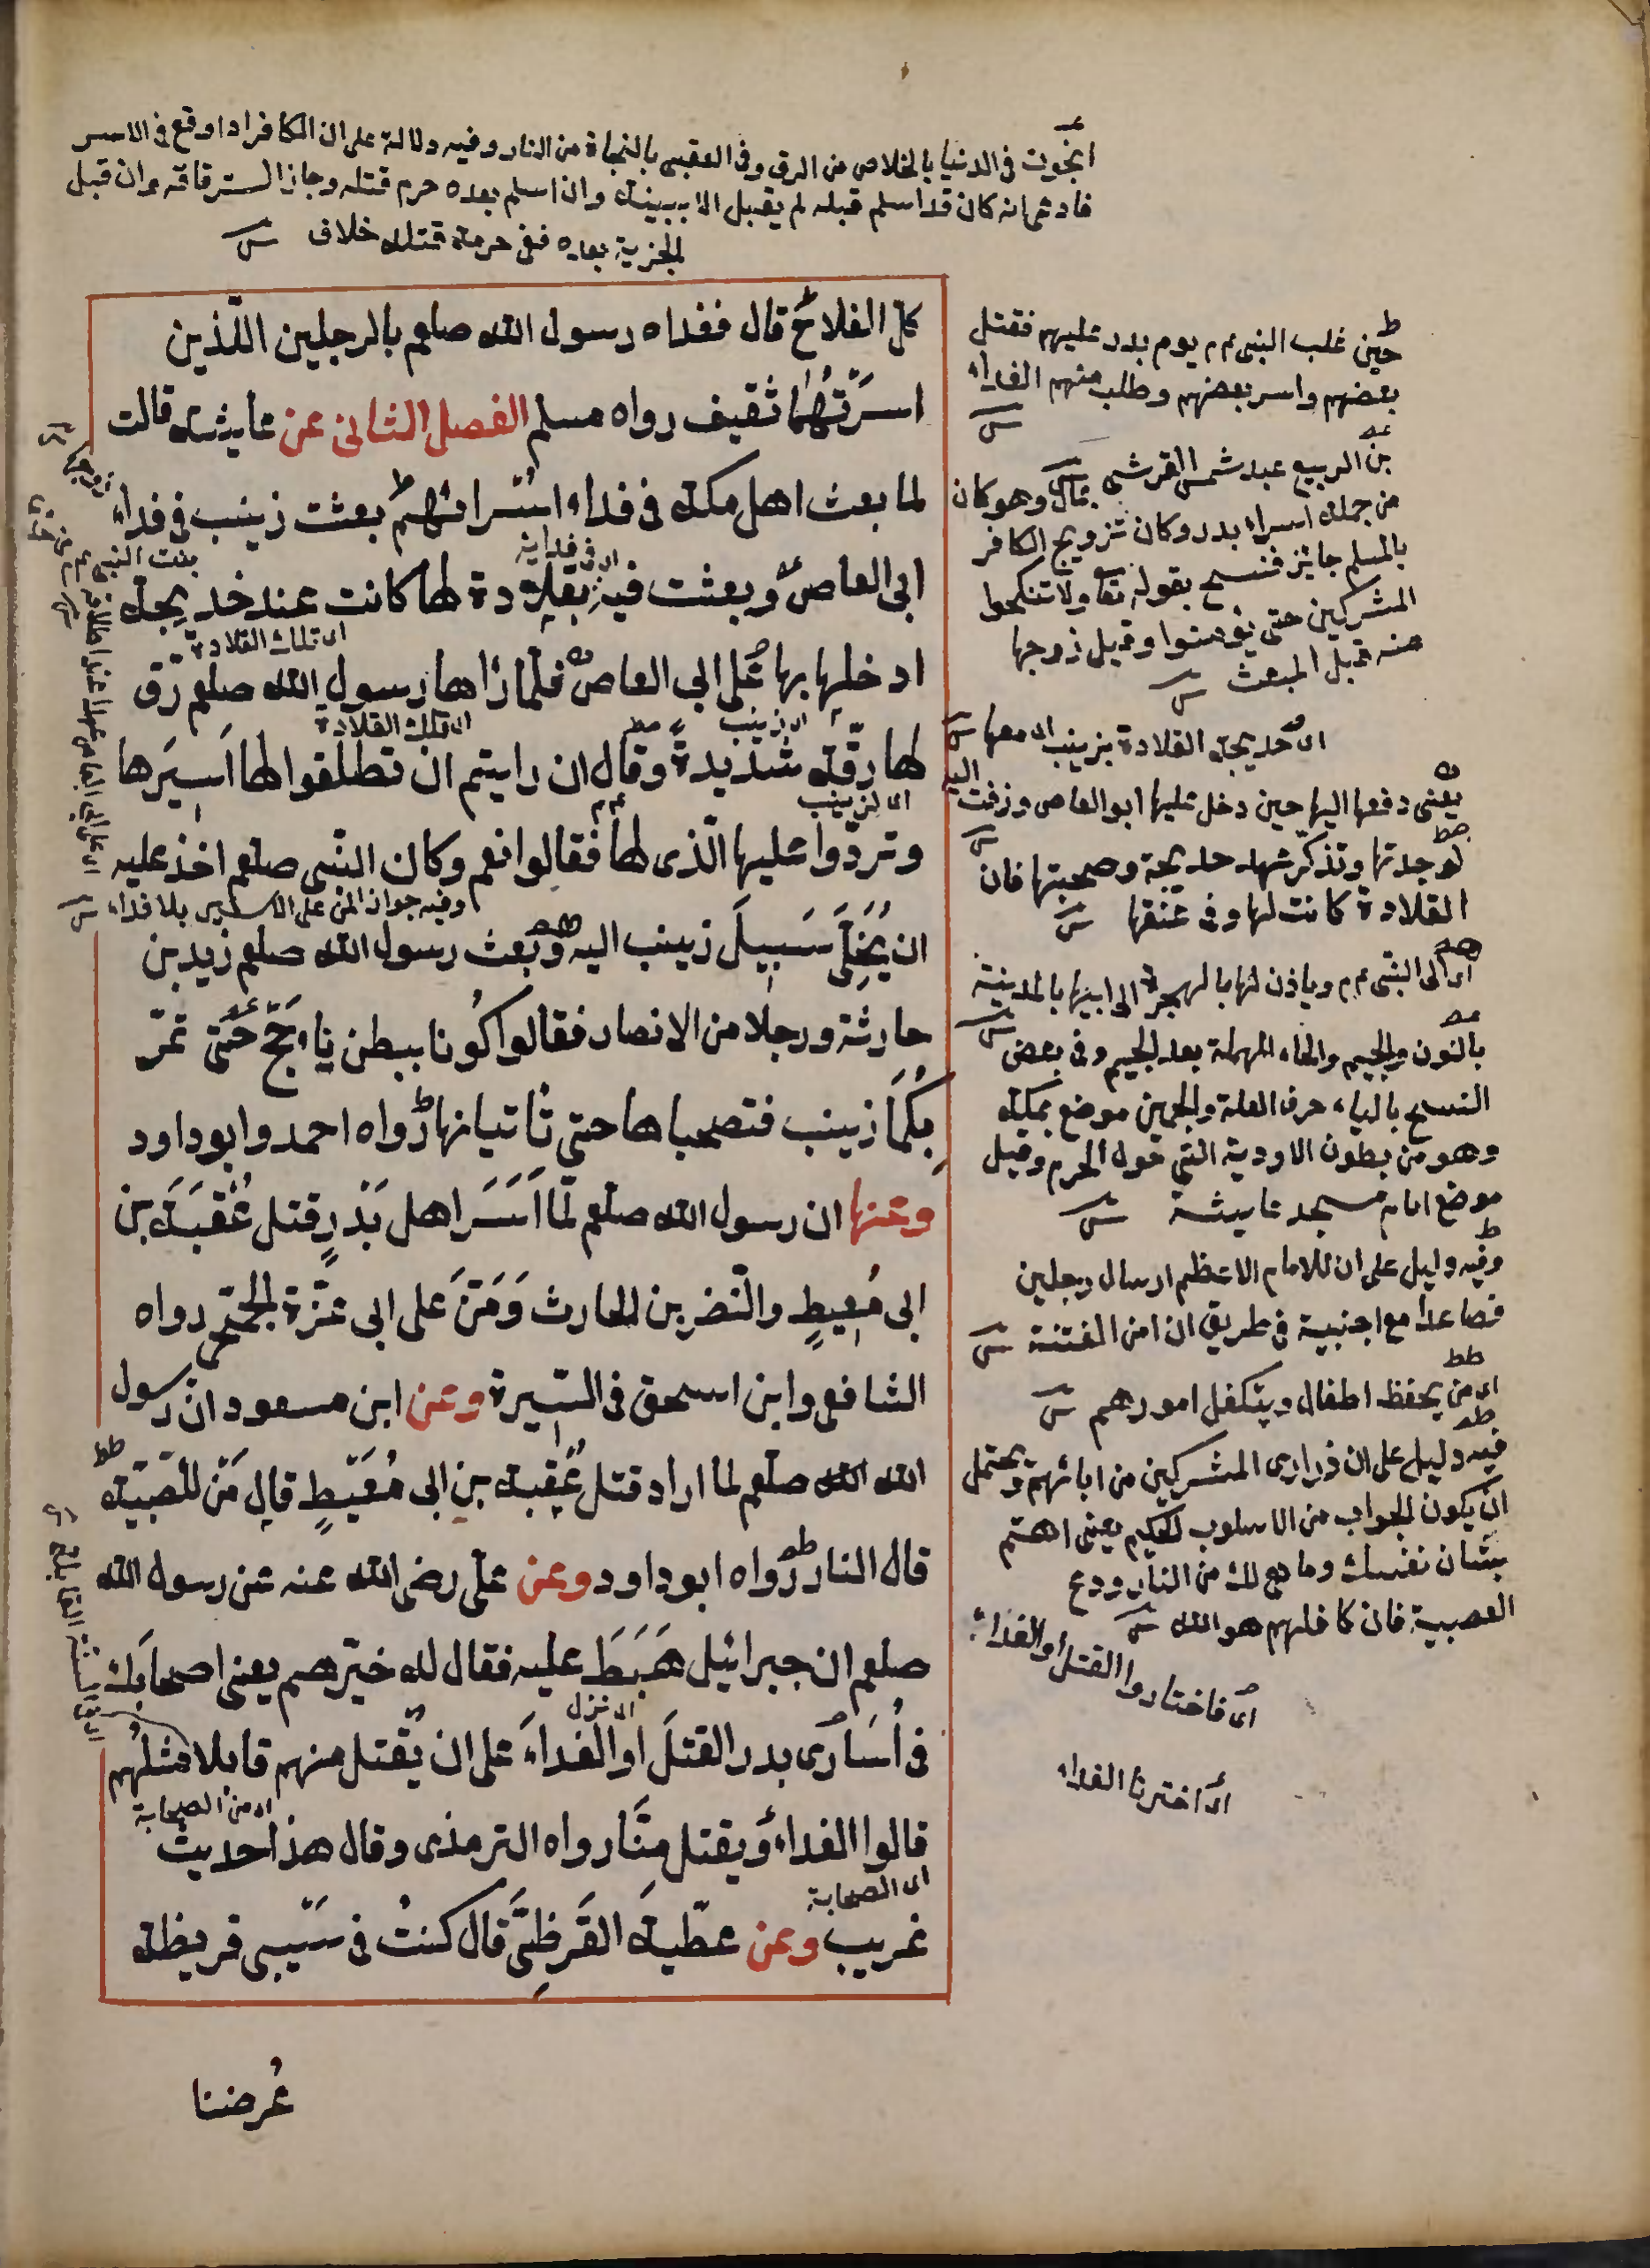 انجوت فى الدنيا بالخلاص من الرق وفى العقبى بالنجاة من النار وفيه دلالة على ان الكافر اذا وقع فى الاسر
فادعى انه كان قد اسلم قبله لم يقبل الا ببينة وان اسلم بعده حرم قتله وجاز استرقاقه وان قبل
الجزية بعده ففى حرمة قتله خلاف
كل الفلاح قال ففداه رسول الله صلعم بالرجلين اللذين
اسرتهما ثقيف رواه مسلم الفصل الثانى عن عايشة قالت
لما بعث اهل مكة فى فداء اسرائهم بعثت زينب فى فداء
اى فى فدائه
ابى العاص وبعثت فيه بقلادة لها كانت عند خديجة
اى تلك القلادة
ادخلتها بها على ابى العاص فلما رأها رسول الله صلعم رق
اى زينب
اى تلك القلادة
لها رقة شديدة وقال ان رايتم ان تطلقوا لها اسيرها
اى لزينب
وتردوا عليها الذى لها فقالوا نعم وكان النبى صلعم اخذ عليه
وفيه جواز المن على الاسير بلا فداء
ان يخلى سبيل زينب اليه وبعث رسول الله صلعم زيد بن
حارثة ورجلا من الانصار فقالوا كونا ببطن ياجج حتى تمر
بكما زينب فتصحباها حتى تاتيانها رواه احمد وابو داود
وعنها ان رسول الله صلعم لما اسر اهل بدر قتل عقبة بن
ابى معيط والنضر بن الحارث ومن على ابى عزة الجمحى رواه
الشافعى وابن اسحق فى السيرة وعن ابن مسعود ان رسول
الله الله صلعم لما اراد قتل عقبة بن ابى معيط قال من للصبية
قال النار رواه ابو داود وعن على رضى الله عنه عن رسول الله
صلعم ان جبرائيل هبط عليه فقال له خيرهم يعنى اصحابك
اى نزل
فى اسارى بدر القتل او الفداء على ان يقتل منهم قابلا مثلهم
اى من الصحابة
قالوا الفداء ويقتل منا رواه الترمذى وقال هذا حديث
اى الصحابة
غريب وعن عطية القرظى قال كنت فى سبى قريظة
عرضنا
حين غلب النبى عم يوم بدر عليهم فقتل
بعضهم واسر بعضهم وطلب منهم الفداء
بن الربيع عبد شمس القرشى بمال وهو كان
من جملة اسراء بدر وكان تزويج الكافر
بالمسلم جايز فنسخ بقوله تعا ولا تنكحوا
المشركين حتى يؤمنوا وقيل زوجها
منه قبل المبعث
اى خديجة القلادة بزينب اى معها
يعنى دفعها اليها حين دخل عليها ابو العاص وزفت اليه
لوجدتها وتذكر عهد خديجة وصحبتها فان
القلادة كانت لها وفى عنقها
اى الى النبى عم وياذن لها بالهجرة الى ابيها بالمدينة
بالنون والجيم والحاء المهملة بعد الجيم وفى بعض
النسخ بالياء حرف العلة والجيمين موضع بمكة
وهو من بطون الاودية التى حول الحرم وقيل
موضع امام مسجد عايشة
وفيه دليل على ان للامام الاعظم ارسال رجلين
فصاعدا مع اجنبية فى طريق ان امن الفتنة
اى من يحفظ اطفال ويتكفل امورهم
فيه دليل على ان ذرارى المشركين من ابائهم ويحتمل
ان يكون الجواب من الاسلوب الحكيم يعنى اهتم
بشان نفسك وما هيئ لك من النار ودع
الصبية فان كافلهم هو الله
اى فاختاروا القتل او الفداء
اى اخترنا الفداء